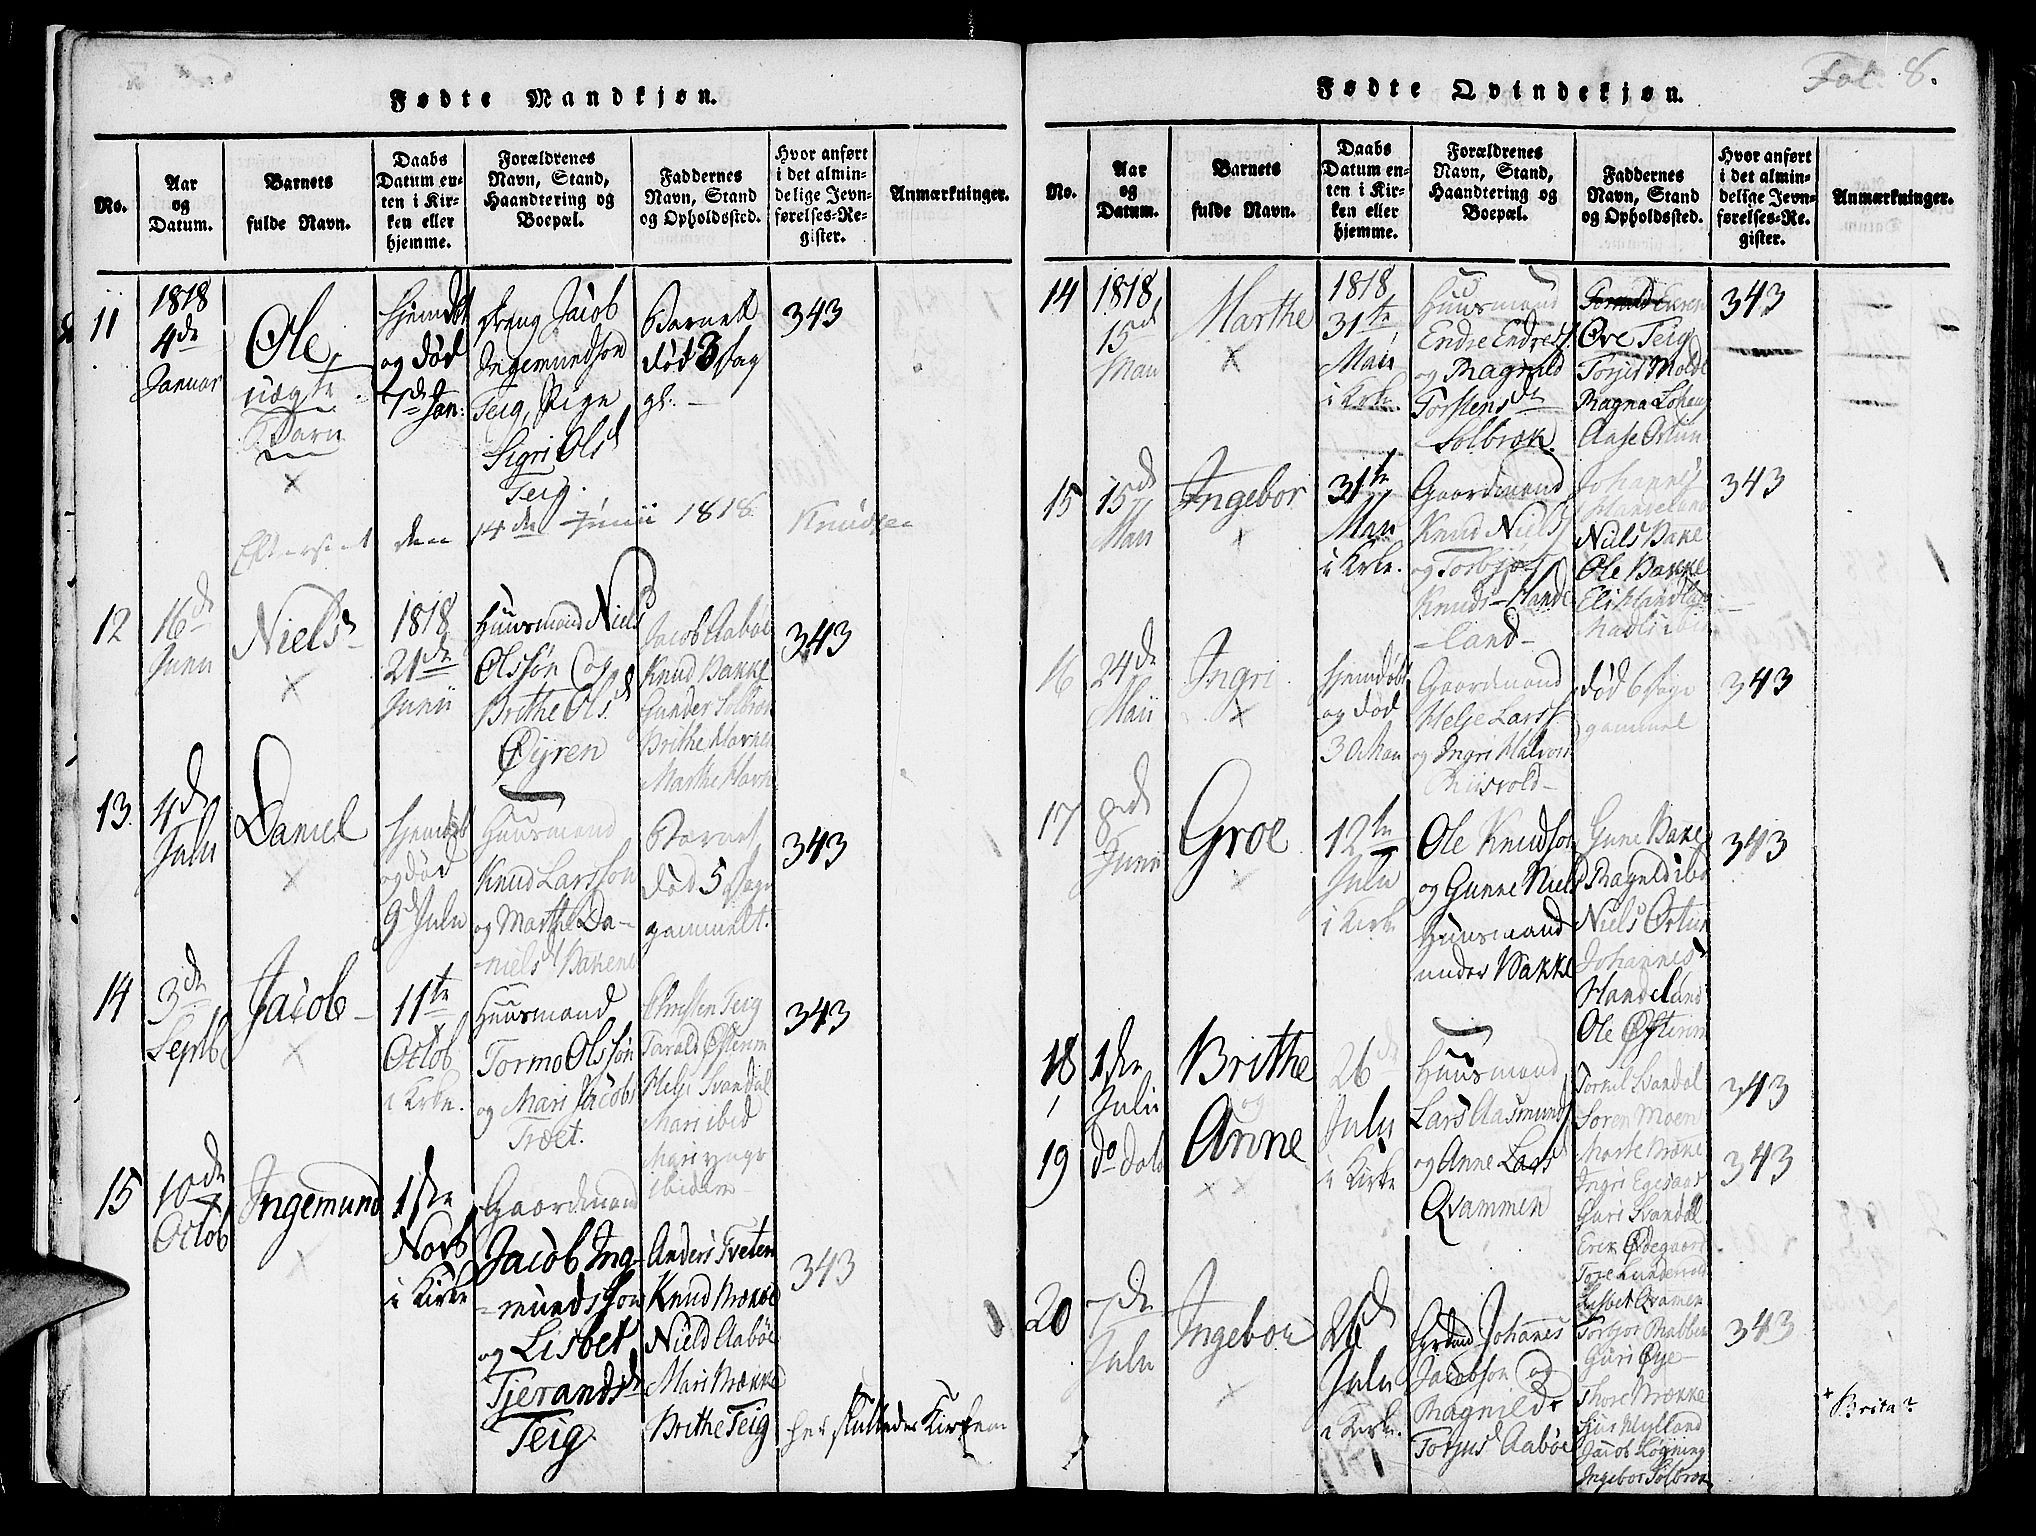 Fødte Mandkjøn.
No.
Aar
og
Datum.
Barnets
fulde Navn.
Daabs
Datum en-
ten i Kir-
ken eller
hjemme.
Forældrenes
Navn, Stand,
Haandtering og
Boepæl.
Faddernes
Navn, Stand
og Opholdssted.
Hvor anført
i det almin-
delige Jevn-
førelses-Re-
gister.
Anmærkninger.
11
1818
4de
Januar
Ole
uægte
Barn
×
Hjemdøbt
og død
7de Jan:
Jacob
Ingemundson
Teig, Pige
Sigri Olsd
Teig.
Barnet
død 3 Dag
gl.
343
Efterseet den 14de Junii 1818. Knudsen
12
16de
Junii
Niels
×
1818
21de
Junii
Huusmand Niels
Olssøn og
Brithe Olsd
Øyren
Jacob Aabøe
Knud Bakke
Gunder Solbræk
Brithe Havnen
Marthe Havn
343
13.
4de
Julii
Daniel
×
Hjemdøbt
og død
9d Julii
Huusmand
Knud Larsson
og Marthe Da-
nielsd Bakene
Barnet
død 5 Dage
gammelt.
343
14
3de
Septb
Jacob
×
11te
Octob
i Kirke.
Huusmand
Tormo Olssøn
og Mari Jacobs
Træet.
Christen Teig
Tarald Østerim
Helje Svandal
Mari ibid
Mari yngr
ibidem
343
15
10de
Octob
Ingemund
×
1ste
Novb
i Kirke
Gaardmand
Jacob Ing-
mundsson
og Lisbet
Tjerandsd
Teig
Anders Tveten
Knud Brække
Nield Aabøe
Mari Brække
Brithe Teig
343
her slutteder Kirken
Fødte Qvindekjøn.
Fol. 8.
No.
Aar
og
Datum.
Barnets
fulde Navn.
Daabs
Datum en-
ten i Kir-
ken eller
hjemme.
Forældrenes
Navn, Stand,
Haandtering og
Boepæl.
Faddernes
Navn, Stand
og Opholdssted.
Hvor anført
i det almin-
delige Jevn-
førelses-Re-
gister.
Anmærkninger.
14
1818
15de
Maii
Marthe
×
1818
31te
Maii
i Kirke.
Huusmand
Endre Endres
og Ragnild
Torstensdr
Solbræk.
Øve Teig
Torjer Molde
Ragna
Aase Østun
343
15
15de
Maii
Ingebor
×
31te
Maii
i Kirke.
Gaardmand
Knud Niels
og Torbjør
Knuds- Hande
-land-
Johannes
Handeland
Niels Bake
Ole Bakke
Eli Handlan
343
16
24de
Maii
Ingri
×
Hjemdøbt
og død
30 Maii
Gaardmand
Helje Larss
og Ingri Halvor
Riisvold-
død 6 Dage
gammel
343
17
8de
Junii
Groe
×
12te
Julii
i Kirke
Ole Knudson
og Gunne Niels
Huusmand
under Bakke
Gune Bake
Ragneld ibd
Niels Østun
Johannes
Handeland
Ole Østerim
343
18
1ste
Julii
Brithe
og
26de
Julii
i Kirke
Huusmand
Lars Aasmunds
og Anne Larsd
Qvammen
Torkel Svandal
Søren Moen
343
19
do dato
Anne
× ×
Marte Brække
Ingri Egesaas
Guri Svandal
Erik Ødegaard
Tore
Lisbet Qvamen
343
20
7de
Julii
Ingebor
×
26d
Julii
i Kirke.
Johannes
Jacobson og
Ragnild
Torjusd Aabøe
Torbjor Rabben
Guri Øye
Thore Brække
Sjur Mylland
Jacob Løgning
Ingebor Solbræk
343
* Brita?